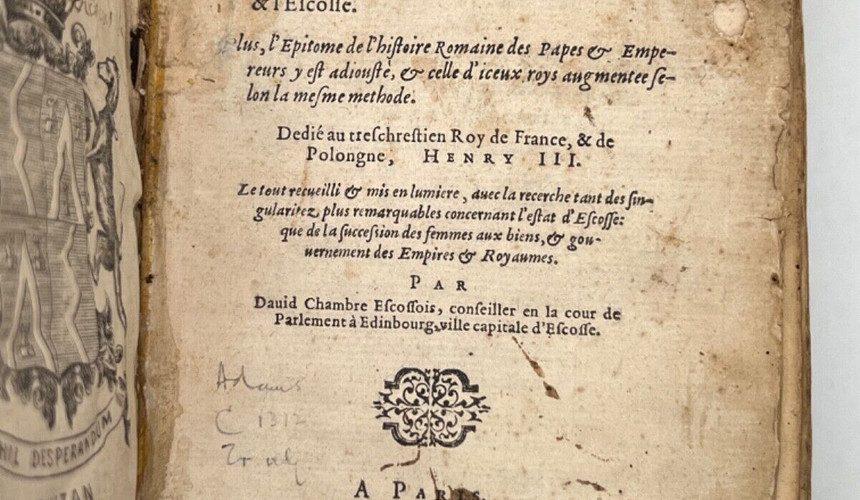 & l'Escosse.
Plus, l'Epitome de l'histoire Romaine des Papes & Empe-
reurs y est adiousté, & celle d'iceux roys augmentee se-
lon la mesme methode.
Dedié au treschrestien Roy de France, & de
Polongne, HENRY III.
Le tout recueilli & mis en lumiere, auec la recerche tant des sin-
gularitez plus remarquables concernant l'estat d'Escosse:
que de la succession des femmes aux biens, & gou-
uernement des Empires & Royaumes.
PAR
Dauid Chambre Escossois, conseiller en la cour de
Parlement à Edinbourg, ville capitale d'Escosse.
Adams
C 1312
A PARIS,
NIL DESPERANDUM